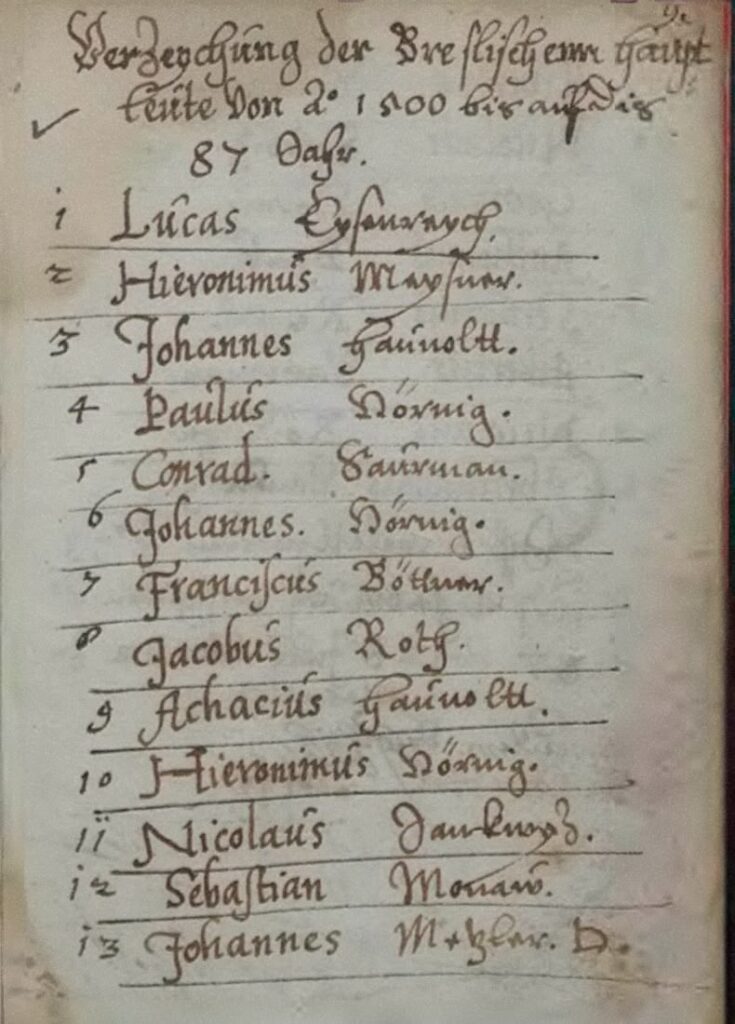 Verzeychung der Breslischenn haupt
leute Von A° 1500 bis auf dis
87 Jahr.
1 Lucas Eysenreych.
2 Hieronimus Meysner.
3 Johannes Haunoltt.
4 Paulus Hörnig.
5 Conrad. Saurman.
6 Johannes. Hörnig.
7 Franciscus Böttner.
8 Jacobus Roth.
9 Achacius Haunoltt.
10 Hieronimus Hörnig.
11 Nicolaus Jenkwyz.
12 Sebastian Monaw.
13 Johannes Metzler. D.